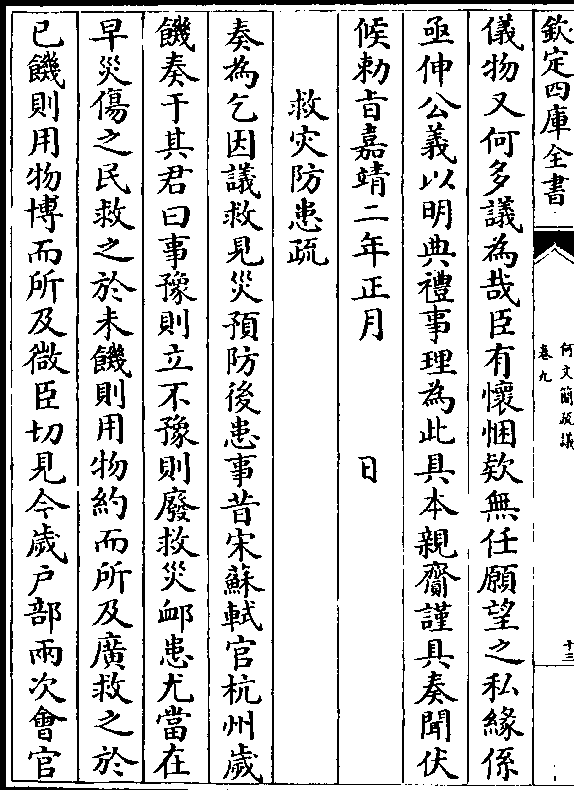 欽定四庫全書
何文簡疏議
卷九
十三
儀物又何多議為哉臣有懷悃欵無任願望之私緣係
亟伸公義以明典禮事理為此具本親齎謹具奏聞伏
候勅旨嘉靖二年正月 日
救灾防患疏
奏為乞因議救見災預防後患事昔宋蘇軾官杭州歲
饑奏于其君曰事豫則立不豫則廢救災邮患尤當在
早災傷之民救之於未饑則用物約而所及廣救之於
已饑則用物博而所及微臣切見今歲戶部兩次會官